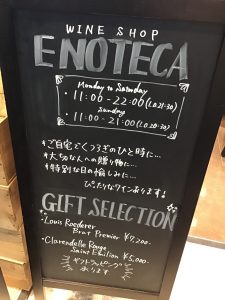 WINE SHOP
ENOTECA
Monday to Saturday
11:00-22:00(LO21:30)
Sunday
11:00-21:00(LO20:30)
♯ご自宅でくつろぎのひと時に…
♯大切な人への贈り物に…
♯特別な日の愉しみに…
ぴったりなワインあります!
GIFT SELECTION
・Louis Roederer
Brut Premier ¥7,200-
・Clarendelle Rouge
Saint Emilion ¥5,000-
ギフトラッピング
あります